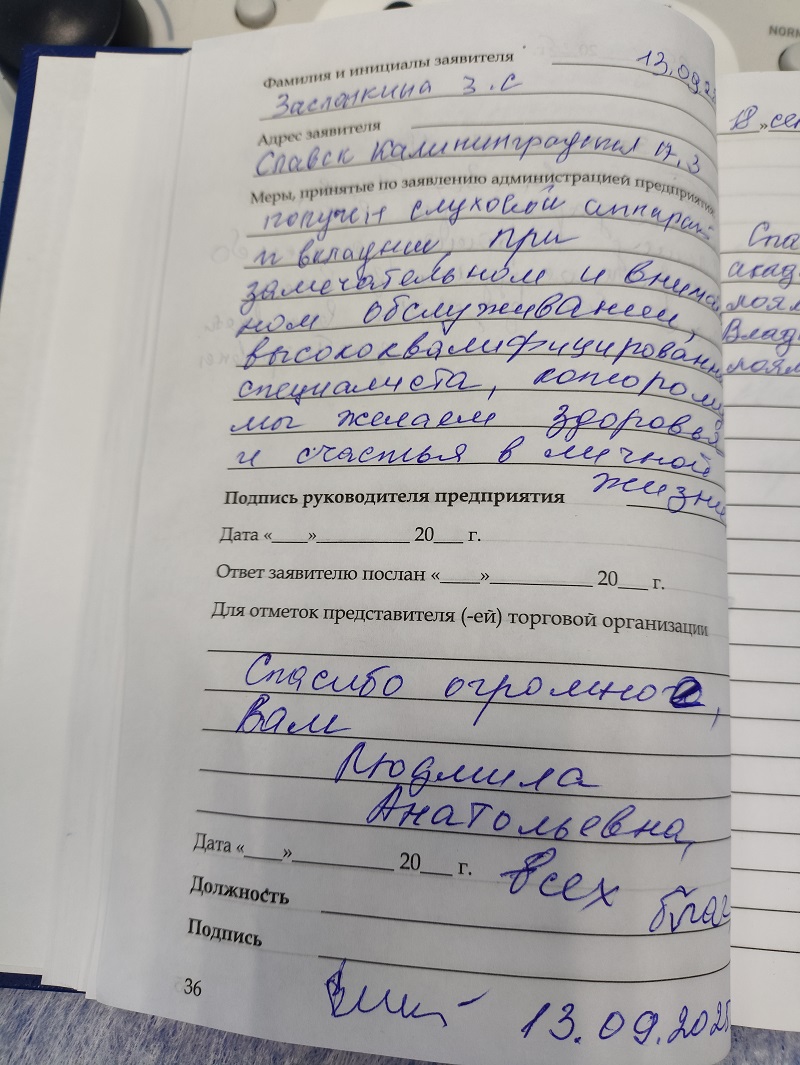 Фамилия и инициалы заявителя 13.09.2
Заслонкина З.С
Адрес заявителя
Славск Калининградская 17, 3
Меры, принятые по заявлению администрацией предприятия
получен слуховой аппарат
и вкладыш, при
замечательном и внима
ном обслуживании,
высококвалифицированн
специалиста, котором
мы желаем здоровья
и счастья в личной
жизни
Подпись руководителя предприятия
Дата «____»__________ 20___ г.
Ответ заявителю послан «____»__________ 20___ г.
Для отметок представителя (-ей) торговой организации
Спасибо огромное,
Вам
Людмила
Анатольевна,
Дата «____»__________ 20___ г. всех благ
Должность
Подпись
13.09.2025
36
NORM
18 „сен
Спа
акад
Влад